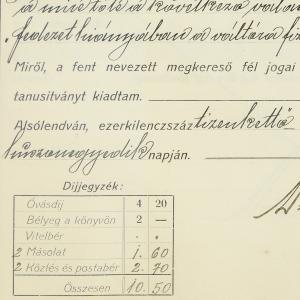 a mire tőle a következő vála
"fedezet hiányában a váltóra fiz
Miről, a fent nevezett megkereső fél jogai
tanusítványt kiadtam.
Alsólendván, ezerkilenczszáz tizenkettő
huszonegyedik napján.
Díjjegyzék:
Óvásdíj 4 20
Bélyeg a könyvön 2 —
Vitelbér . .
2 Másolat 1. 60
2 Közlés és postabér 2. 70
Összesen 10. 50